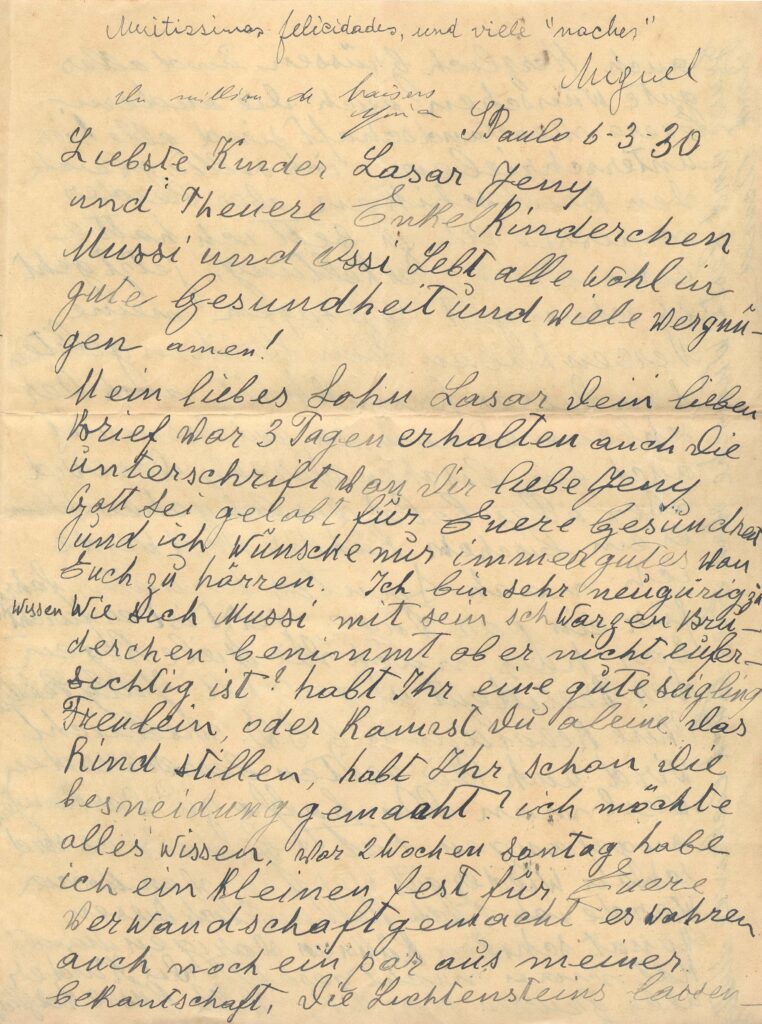 Muitissimas felicidades, und viele "naches"
Miguel
Un million de baisers
SPaulo 6-3-30
Liebste Kinder Lasar Jeny
und Theuere Enkelkinderchen
Mussi und Ossi Lebt alle wohl in
gute Gesundheit und viele vergnü-
gen amen!
Mein liebes Sohn Lasar Dein lieben
Brief vor 3 Tagen erhalten auch die
unterschrift von Dir liebe Jeny
Gott sei gelobt für Euere Gesundheit
und ich wünsche nur immer gutes von
Euch zu hörren. Ich bin sehr neugürig zu
wissen wie sich Mussi mit sein schwarzen Brü-
derchen benimmt ob er nicht eufer-
sichtig ist? habt Ihr eine gute seigling
Freulein, oder kannst Du aleine das
Kind stillen, habt Ihr schon die
besneidung gemacht? ich möchte
alles wissen, vor 2 Wochen sontag habe
ich ein kleinen fest für Euere
Verwandschaft gemacht es wahren
auch noch ein par aus meiner
bekantschaft, die Lichtensteins lassen